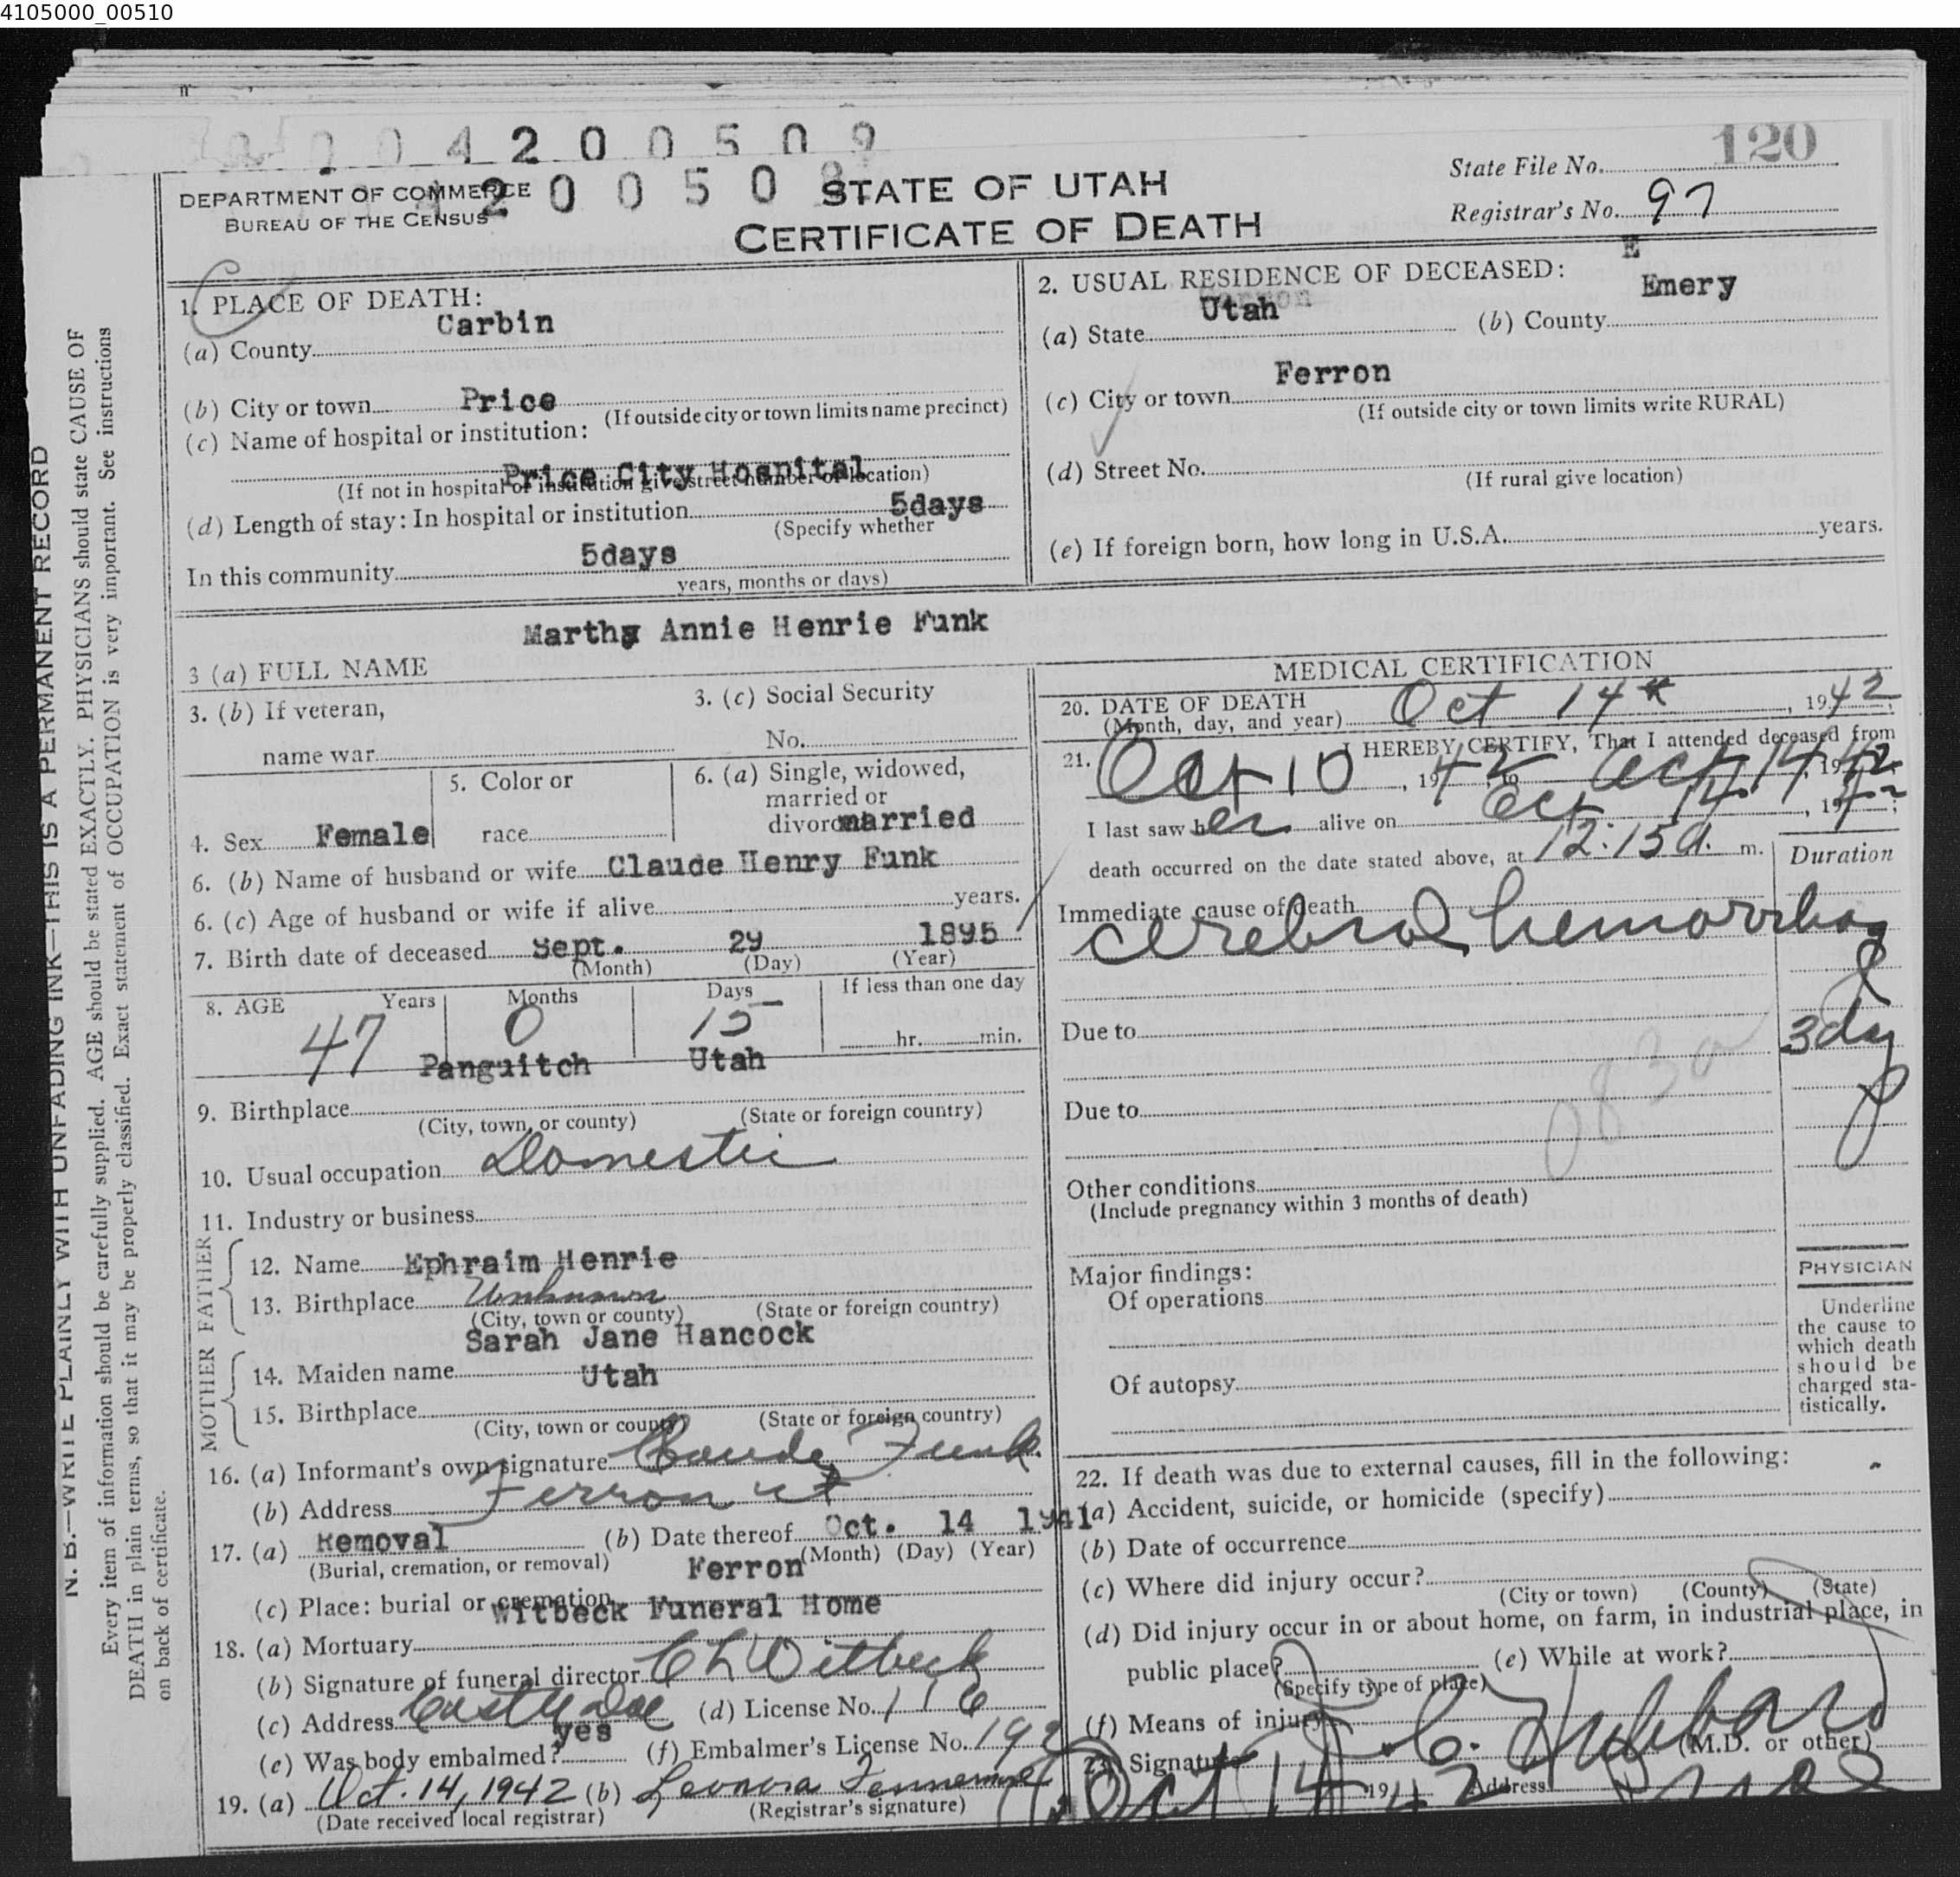 4105000_00510
0 0 4 2 0 0 5 0 9
2 0 0 5 0 9
120
DEPARTMENT OF COMMERCE
BUREAU OF THE CENSUS
STATE OF UTAH
CERTIFICATE OF DEATH
State File No.
Registrar's No. 97
1. PLACE OF DEATH:
(a) County Carbin
(b) City or town Price
(If outside city or town limits name precinct)
(c) Name of hospital or institution:
Price City Hospital
(If not in hospital or institution give street number or location)
(d) Length of stay: In hospital or institution 5days
(Specify whether
In this community 5days
years, months or days)
2. USUAL RESIDENCE OF DECEASED:
E
(a) State Utah (b) County Emery
(c) City or town Ferron
(If outside city or town limits write RURAL)
(d) Street No.
(If rural give location)
(e) If foreign born, how long in U.S.A. years.
3 (a) FULL NAME Martha Annie Henrie Funk
3. (b) If veteran,
name war
3. (c) Social Security
No.
4. Sex Female
5. Color or
race
6. (a) Single, widowed,
married or
divorced married
6. (b) Name of husband or wife Claude Henry Funk
6. (c) Age of husband or wife if alive years.
7. Birth date of deceased Sept. 29 1895
(Month) (Day) (Year)
8. AGE Years Months Days If less than one day
47 0 15 hr. min.
9. Birthplace Panguitch Utah
(City, town, or county) (State or foreign country)
10. Usual occupation Domestic
11. Industry or business
FATHER
12. Name Ephraim Henrie
13. Birthplace Unknown
(City, town or county) (State or foreign country)
MOTHER
14. Maiden name Sarah Jane Hancock
15. Birthplace Utah
(City, town or county) (State or foreign country)
16. (a) Informant's own signature Claude Funk
(b) Address Ferron Ut
17. (a) Removal (b) Date thereof Oct. 14 1941
(Burial, cremation, or removal) (Month) (Day) (Year)
(c) Place: burial or cremation Ferron
18. (a) Mortuary Witbeck Funeral Home
(b) Signature of funeral director C L Witbeck
(c) Address Castle Dale (d) License No. 116
(e) Was body embalmed? yes (f) Embalmer's License No. 192
19. (a) Oct. 14, 1942 (b) Leonora
(Date received local registrar) (Registrar's signature)
MEDICAL CERTIFICATION
20. DATE OF DEATH
(Month, day, and year) Oct 14th, 1942
21. I HEREBY CERTIFY, That I attended deceased from
Oct 10, 1942 to Oct 14, 1942
I last saw her alive on Oct 14, 1942;
death occurred on the date stated above, at 12:15 a. m.
Duration
Immediate cause of death
Cerebral hemorrhag
Due to
3 day
Due to
083a
Other conditions
(Include pregnancy within 3 months of death)
Major findings:
Of operations
Of autopsy
PHYSICIAN
Underline
the cause to
which death
should be
charged sta-
tistically.
22. If death was due to external causes, fill in the following:
(a) Accident, suicide, or homicide (specify)
(b) Date of occurrence
(c) Where did injury occur?
(City or town) (County) (State)
(d) Did injury occur in or about home, on farm, in industrial place, in
public place? (e) While at work?
(Specify type of place)
(f) Means of injury
23. Signature C. Hubbard (M.D. or other)
Oct 14 1942 Address
N. B.—WRITE PLAINLY WITH UNFADING INK—THIS IS A PERMANENT RECORD
Every item of information should be carefully supplied. AGE should be stated EXACTLY. PHYSICIANS should state CAUSE OF
DEATH in plain terms, so that it may be properly classified. Exact statement of OCCUPATION is very important. See instructions
on back of certificate.